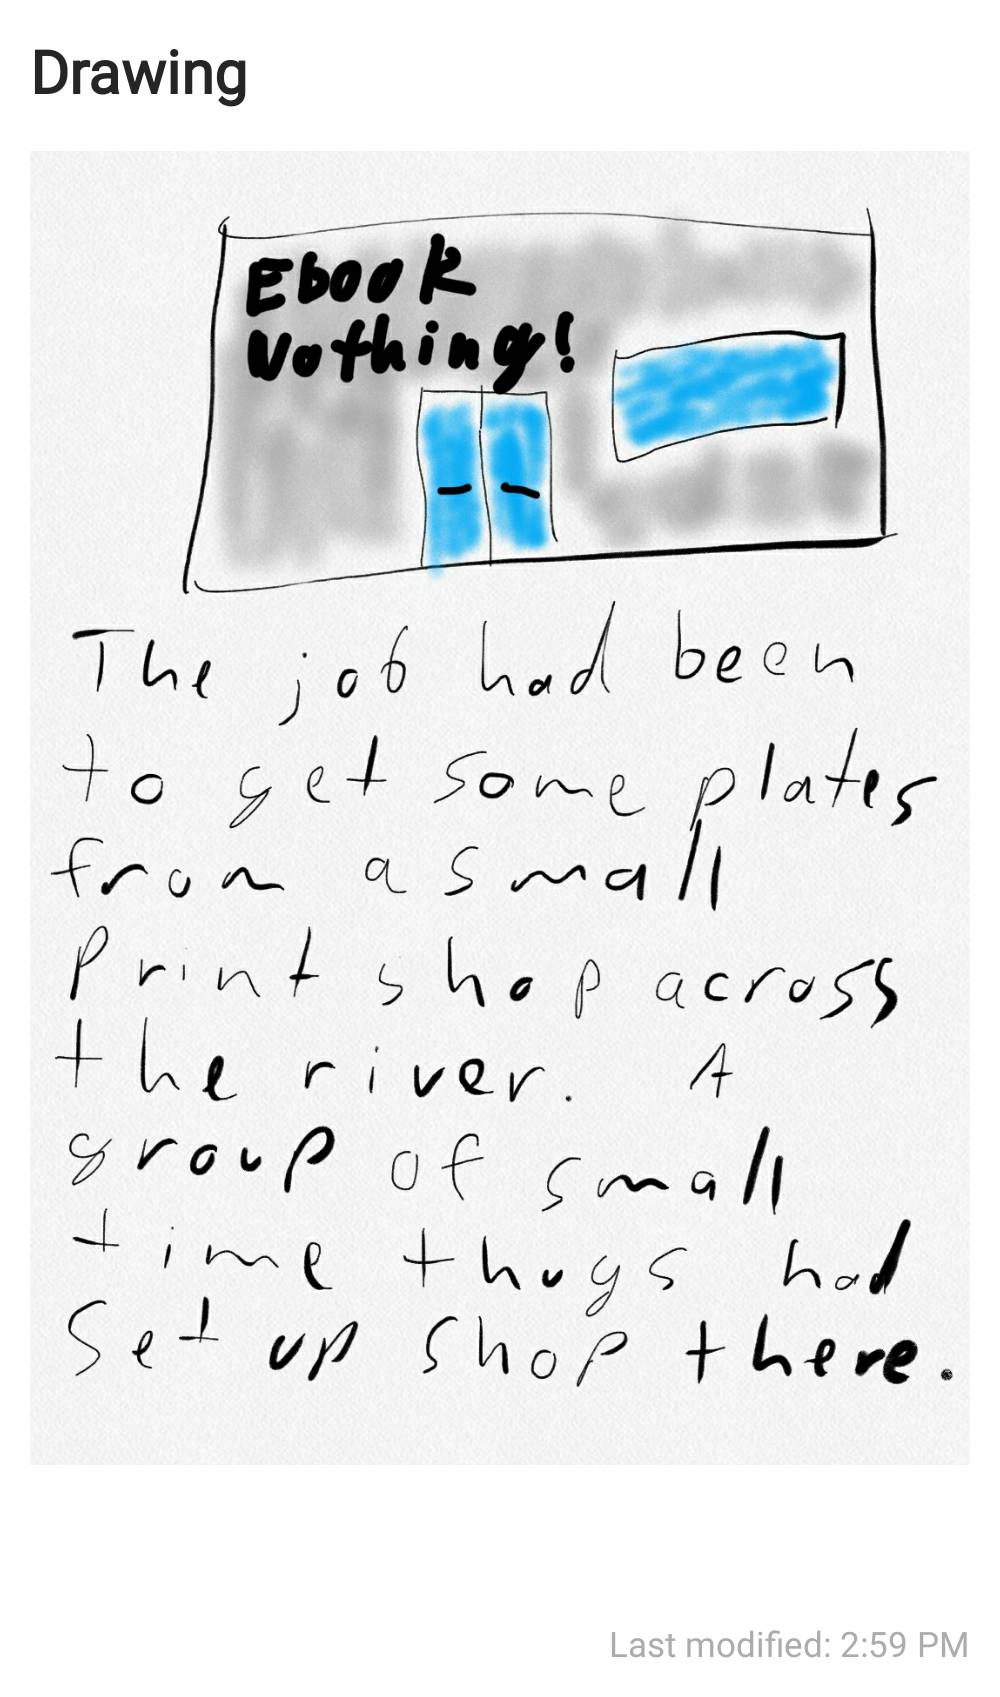 Drawing
Ebook
Nothing!
The job had been
to get some plates
from a small
Print shop across
the river. A
group of small
time thugs had
Set up shop there.
Last modified: 2:59 PM